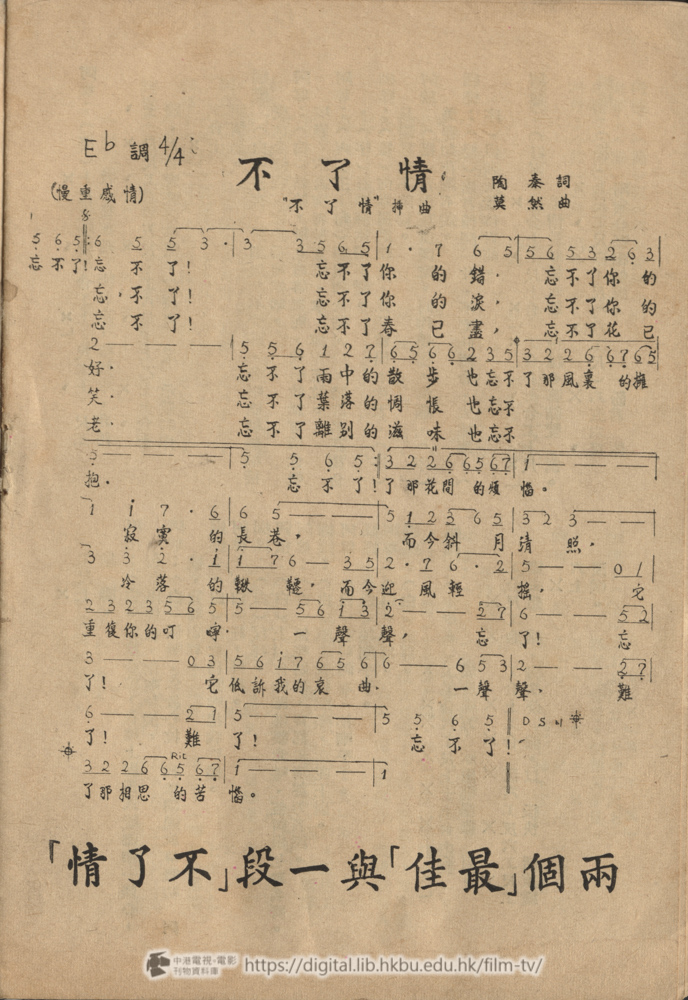 Eb 調 4/4
不了情
陶秦詞
(慢重感情)
"不了情"插曲
莫然曲
5 6 5 6 5 5 3 · 3 3 5 6 5 1 · 7 6 5 5 6 5 3 2 6 3
忘不了!忘不了! 忘不了你的錯. 忘不了你的
忘,不了! 忘不了你的淚, 忘不了你的
忘不了! 忘不了春已盡, 忘不了花已
2 — — — 5 5 6 1 2 7 6 5 6 6 2 3 5 3 2 2 6 6 7 6 5
好. 忘不了雨中的散步也忘不了那風裏的擁
笑. 忘不了葉落的惆悵也忘不
老. 忘不了離別的滋味也忘不
5 — — — 5 5 6 5 3 2 2 6 6 5 6 7 1 — — —
抱. 忘不了!了那花間的煩惱。
1 1 7 · 6 6 5 — — 5 1 2 3 6 5 3 2 3 — —
寂寞的長巷, 而今斜月清照,
3 3 2 · 1 1 7 6 — 3 5 2 · 7 6 · 2 5 — — 0 1
冷落的鞦韆, 而今迎風輕搖, 它
2 3 2 3 5 6 5 5 — 5 6 1 3 2 — — 2 7 6 — — 5 2
重復你的叮嚀. 一聲聲, 忘了! 忘
3 — — 0 3 5 6 1 7 6 5 6 6 — 6 5 3 2 — — 2 7
了! 它低訴我的哀曲. 一聲聲. 難
6 — — 2 1 5 — — — 5 5 6 5 D S
了! 難了! 忘不了!
Rit
3 2 2 6 6 5 6 7 1 — — — 1
了那相思的苦惱。
「情了不」段一與「佳最」個兩
中港電視·電影
刊物資料庫
https://digital.lib.hkbu.edu.hk/film-tv/